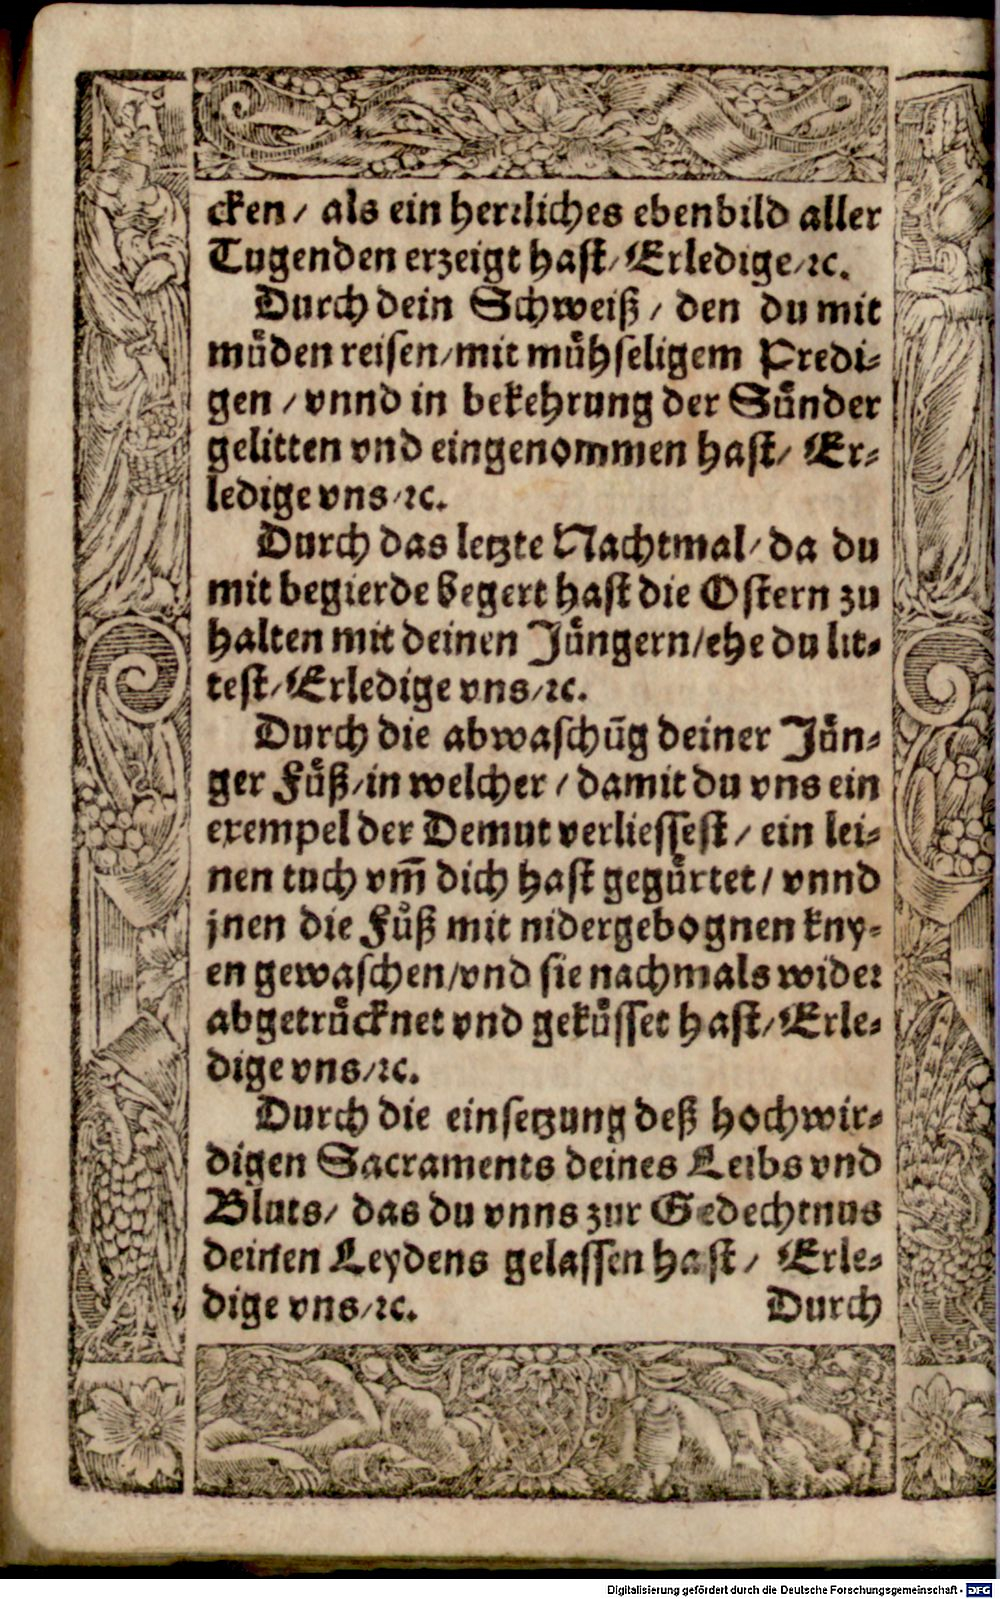 cken / als ein herrliches ebenbild aller
Tugenden erzeigt hast / Erledige / ꝛc.
Durch dein Schweiß / den du mit
muͤden reisen / mit muͤhseligem Predi⸗
gen / vnnd in bekehrung der Suͤnder
gelitten vnd eingenommen hast / Er⸗
ledige vns / ꝛc.
Durch das letzte Nachtmal / da du
mit begierde begert hast die Ostern zu
halten mit deinen Juͤngern / ehe du lit⸗
test / Erledige vns / ꝛc.
Durch die abwaschūg deiner Juͤn⸗
ger Fuͤß / in welcher / damit du vns ein
exempel der Demut verliessest / ein lei⸗
nen tuch vm̄ dich hast geguͤrtet / vnnd
jnen die Fuͤß mit nidergebognen kny⸗
en gewaschen / vnd sie nachmals wider
abgetruͤcknet vnd gekuͤsset hast / Erle⸗
dige vns / ꝛc.
Durch die einsetzung deß hochwir⸗
digen Sacraments deines Leibs vnd
Bluts / das du vnns zur Gedechtnus
deinen Leydens gelassen hast / Erle⸗
dige vns / ꝛc. Durch
Digitalisierung gefördert durch die Deutsche Forschungsgemeinschaft - DFG